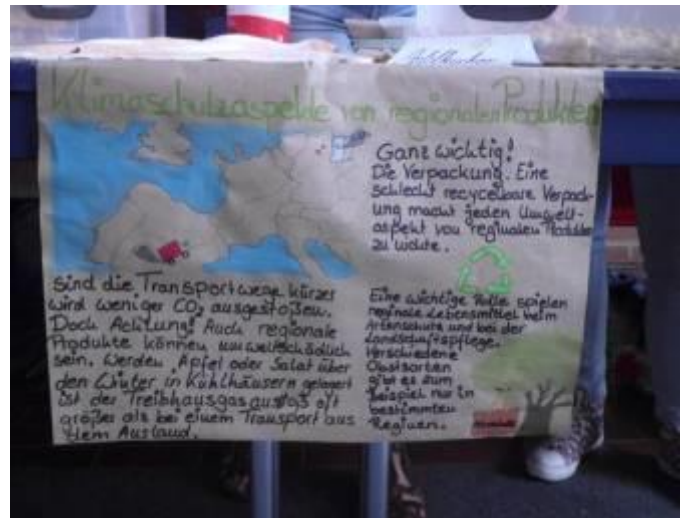 Klimaschutzaspekte von regionalen Produkten
Ganz wichtig!
Die Verpackung. Eine
schlecht recycelbare Verpack-
ung macht jeden Umwelt-
aspekt von regionalen Produkte
zu nichte.
Sind die Transportwege kürzer
wird weniger CO₂ ausgestoßen.
Doch Achtung! Auch regionale
Produkte können umweltschädlich
sein. Werden Äpfel oder Salat über
den Winter in Kühlhäusern gelagert
ist der Treibhausgasaustoß oft
größer als bei einem Transport aus
dem Ausland.
Eine wichtige Rolle spielen
regionale Lebensmittel beim
Artenschutz und bei der
Landschaftspflege.
Verschiedene
Obstsorten
gibt es zum
Beispiel nur in
bestimmten
Regionen.